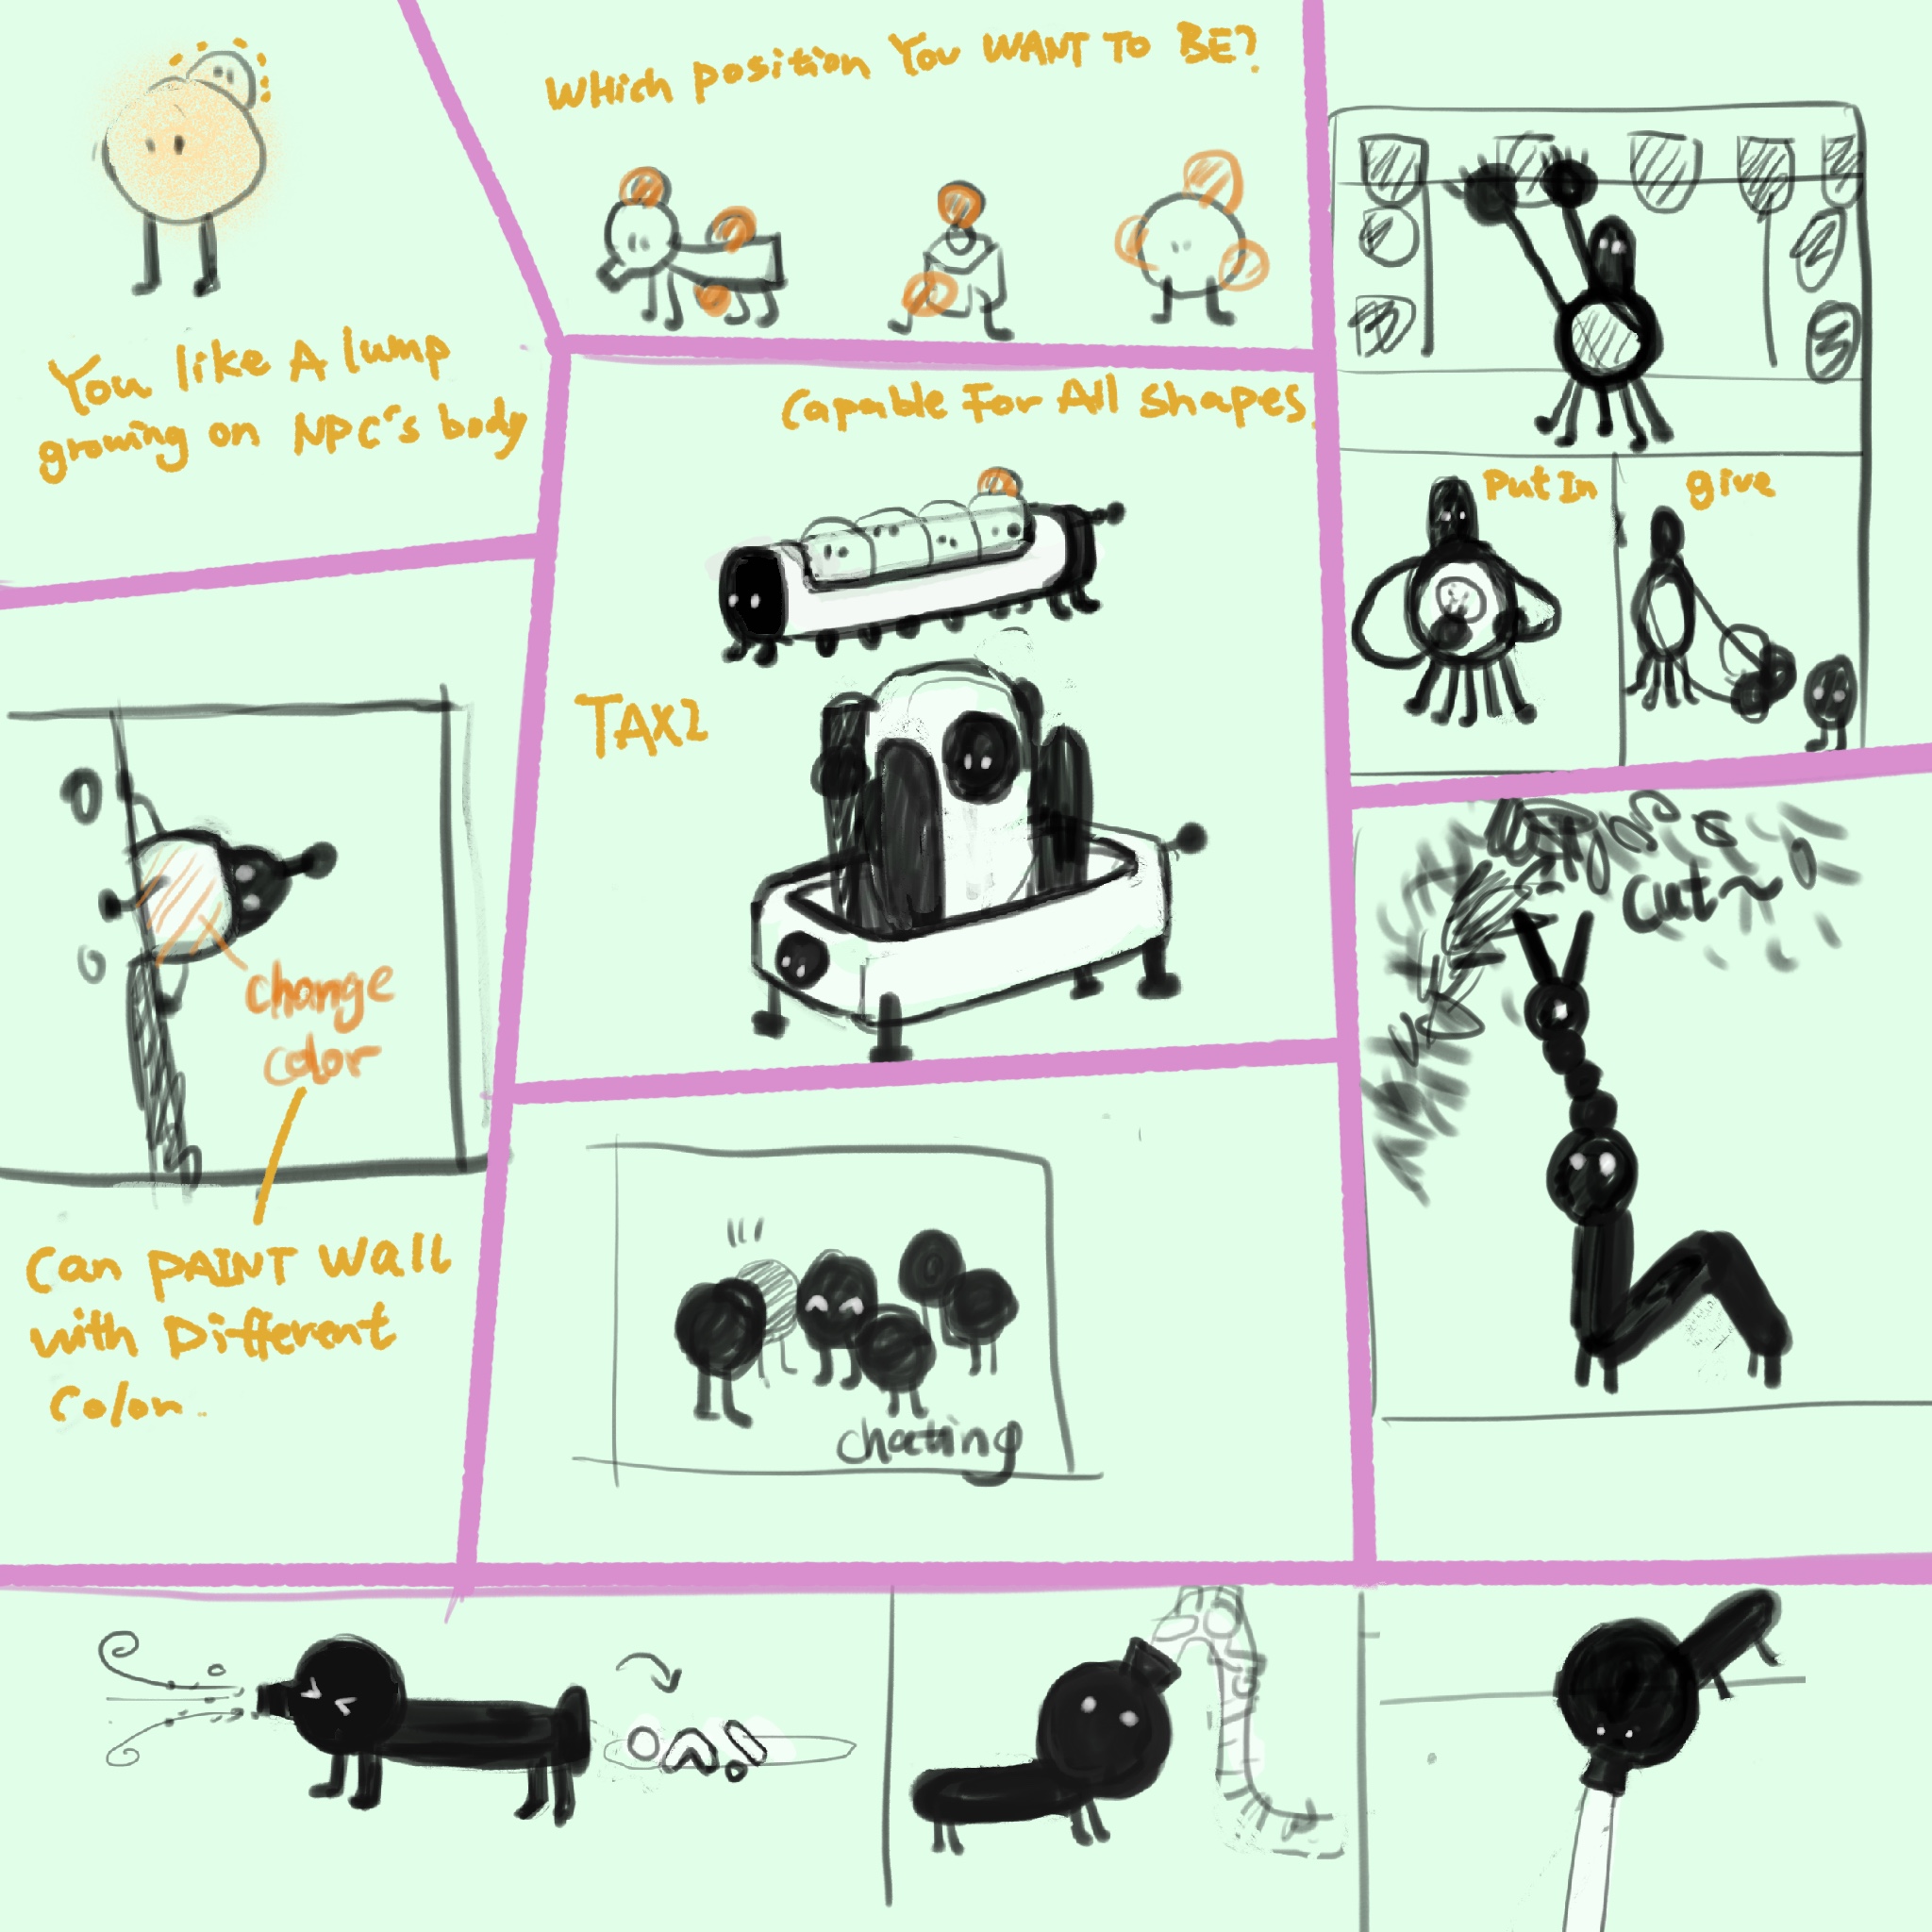 You like A lump
growing on NPC's body
Which position You WANT TO BE?
Capable For All shapes
TAXI
Put In
give
change
color
Can PAINT Wall
with Different
Color.
Cut~
chatting